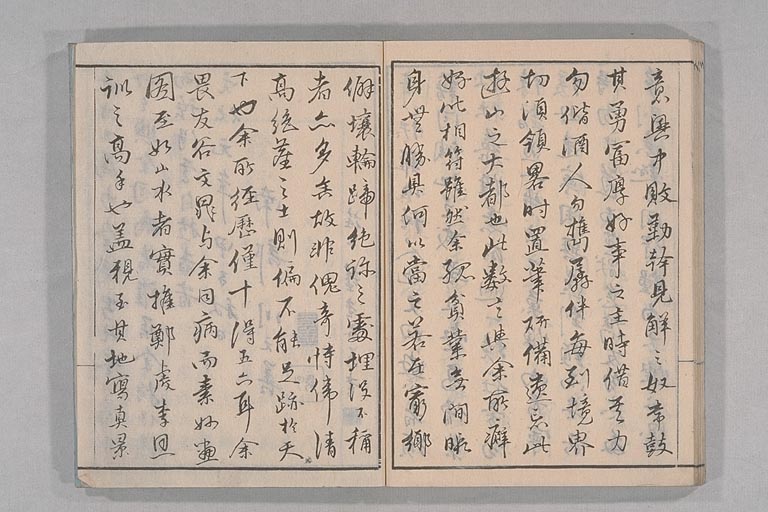 意興中敗勤幹見解之奴常鼓
其勇富厚好事之主時借其力
勿偕酒人勿携孱伴每到境界
切須領畧時置筆研備遺忘此
遊山之大都也此數之與余所癖
好此相符雖然余孤貧業無間暇
身無勝具何以當之若在窮鄉
僻壤輪蹄絶跡之處埋没不稱
者亦多矣故非傀奇恃偉清
高絶塵之士則偏不能足跡於天
下也余所経歷僅十得五六耳余
畏友谷文晁与余同病而素妙畫
圖至如山水者實推鄭虔李思
訓之高手也蓋親至其地寫真景